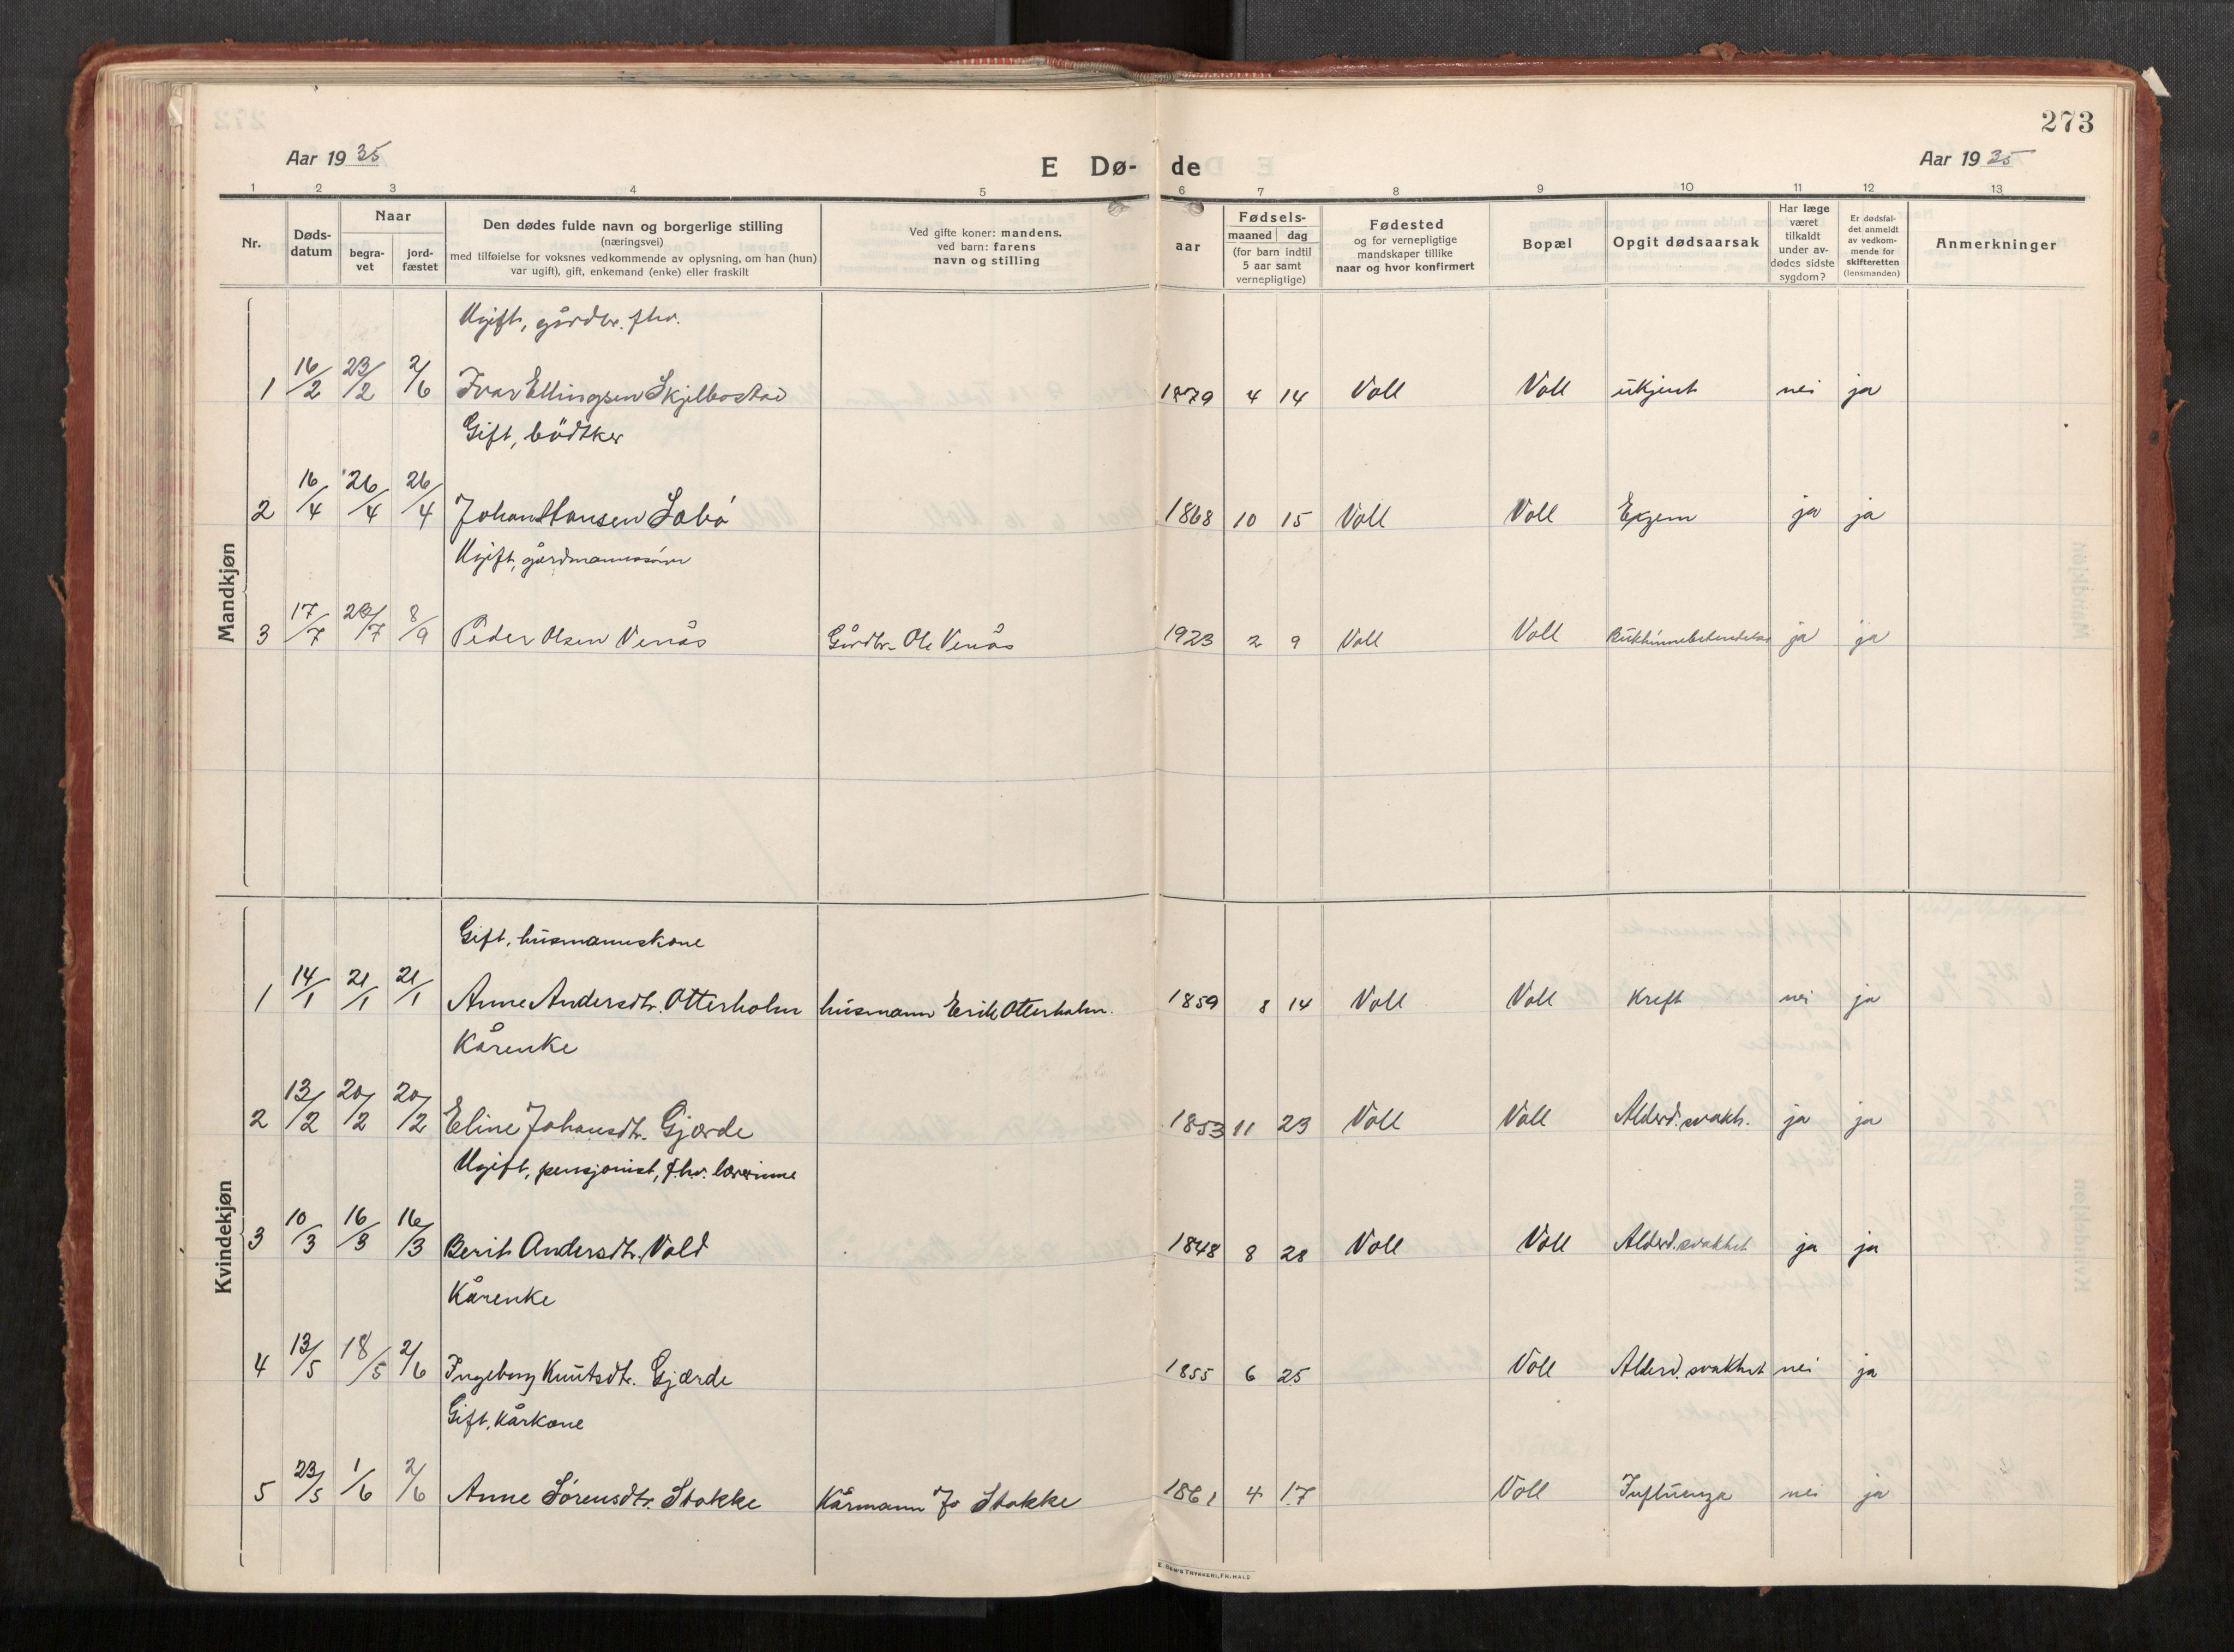 273
Aar 1935 E Dø- de Aar 1935
1 2 3 4 5 6 7 8 9 10 11 12 13
Nr.
Døds-
datum
Naar
begra-
vet
jord-
fæstet
Den dødes fulde navn og borgerlige stilling
(næringsvei)
med tilføielse for voksnes vedkommende av oplysning, om han (hun)
var ugift), gift, enkemand (enke) eller fraskilt
Ved gifte koner: mandens,
ved barn: farens
navn og stilling
aar
Fødsels-
maaned dag
(for barn indtil
5 aar samt
vernepligtige)
Fødested
og for vernepligtige
mandskaper tillike
naar og hvor konfirmert
Bopæl
Opgit dødsaarsak
Har læge
været
tilkaldt
under av-
dødes sidste
sygdom?
Er dødsfal-
det anmeldt
av vedkom-
mende for
skifteretten
(lensmanden)
Anmerkninger
Mandkjøn
Ugift, gårdbr. fhv.
1 16/2 23/2 2/6 Ivar Ellingsen Skjelbostad 1879 4 14 Voll Voll ukjent nei ja
Gift, bödtker
2 16/4 26/4 26/4 Johan Hansen 1868 10 15 Voll Voll Exzem ja ja
Ugift, gårdmannssönn
3 17/7 /7 8/9 Peder Olsen Venås Gårdbr. Ole Venås 1923 2 9 Voll Voll Bukhinnebetendelse ja ja
Kvindekjøn
Gift, husmannskone
1 14/1 21/1 21/1 Anne Andersdtr. Otterholm husmann Erik Otterholm. 1859 8 14 Voll Voll Kreft nei ja
Kårenke
2 13/2 20/2 20/2 Eline Johansdtr. Gjærde 1853 11 23 Voll Voll Alderd. svakh. ja ja
Ugift, pensjonist, f.hv. lærerinne
3 10/3 16/3 16/3 Berit Andersdtr. Vold 1848 8 28 Voll Voll Alderd. svakhet ja ja
Kårenke
4 13/5 18/5 2/6 Ingeborg Knutsdtr. Gjærde 1855 6 25 Voll Alderd. svakhet nei ja
Gift, Kårkone
5 23/5 1/6 2/6 Anne Sörensdtr. Stokke Kårmann Jo Stokke 1861 4 17 Voll Influenza nei ja